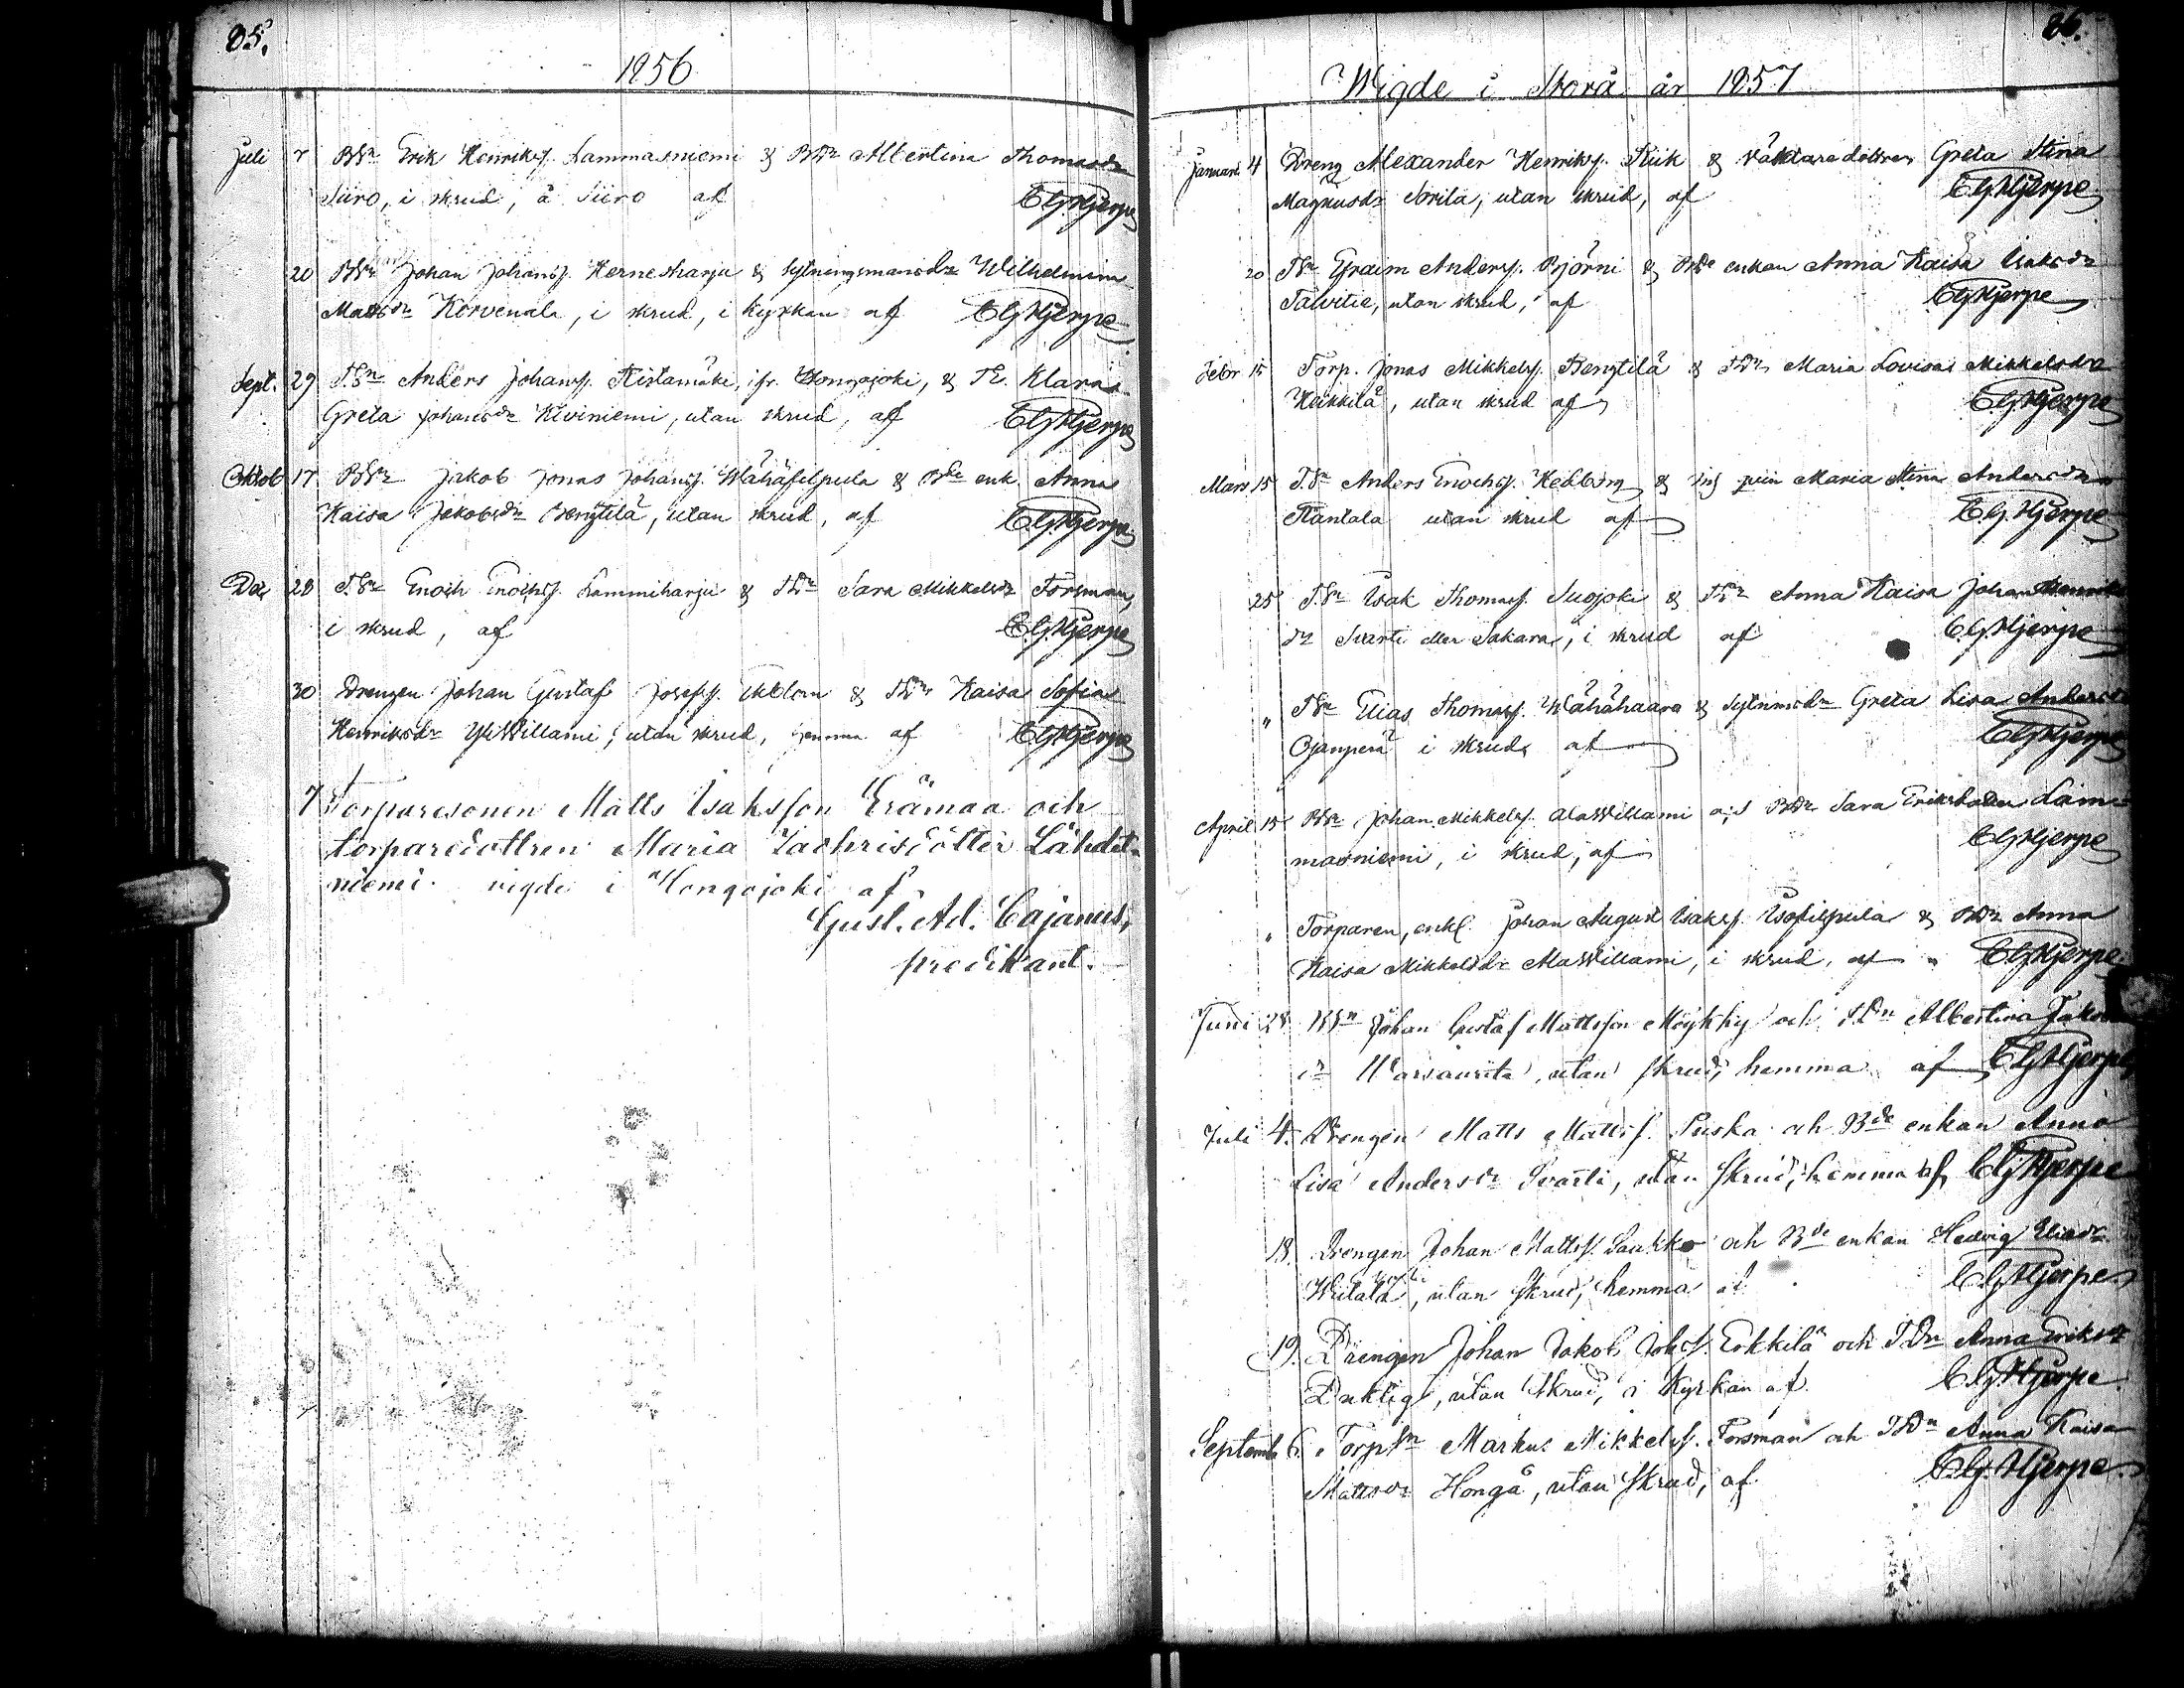 85.
1856
Juli 7 BSn Erik Henriksf. Lammasniemi & BDr Albertina Thomasdr
Siiro, i skrud, å Siiro af CGHjerpe
20 BSn Johan Johansf. Herneharju & Sytningsmansdr Wilhelmina
Mattsdr Korvenala, i skrud, i kyrkan af CGHjerpe
Sept. 29 T.Sn Anders Johansf. Ristamäki, ifr. Hongojoki, & TD. Klara
Greta Johansdr Kiviniemi, utan skrud, af CGHjerpe
Oktob 17 BSn Jakob Jonas Johansf. Wähäfilpula & Bde enk. Anna
Kaisa Jakobsdr Bengtilä, utan skrud, af CGHjerpe
Dec 28 T.Sn Enoch Enochsf. Lammiharju & TDr Sara Mikkelsdr Forsman,
i skrud, af CGHjerpe
30 Drengen Johan Gustaf Josefsf. Ekblom & TDr Kaisa Sofia
Henriksdr YliWillami, utan skrud, hemma af CGHjerpe
7 Torparesonen Matts Isaksson Erämaa och
torparedottren Maria Zachrisdotter Lähdet-
niemi vigde i Hongojoki af
Gust. Ad. Cajanus,
predikant.
86.
Wigde i Storå år 1857
Januari 4 Dreng Alexander Henriksf. Kiik & väktaredottren Greta Stina
Magnusdr Sorila, utan skrud, af CGHjerpe
20 TSn Efraim Andersf. Björni & Bde enkan Anna Kaisa Isaksdr
Talvitie, utan skrud, af CGHjerpe
Febr 15 Torp. Jonas Mikkelsf. Bengtilä & TDr Maria Lovisa Mikkelsdr
Heikkilä, utan skrud af CGHjerpe
Mars 15 T.Sn Anders Enochsf. Hebberg & pin Maria Stina Andersdr
Rantala utan skrud af C.G.Hjerpe
25 T.Sn Isak Thomasf. Suojoki & TDr Anna Kaisa Johan Henriks
dr Svarti eller Sakara, i skrud af C.G.Hjerpe
" TSn Elias Thomasf. Wähähaara & Sytnmsdr Greta Lisa Andersdr
Ojanperä i skrud, af CGHjerpe
April 15 BSn Johan Mikkelsf. AlaWillami och BDr Sara Eriksdotter Lam-
masniemi, i skrud, af CGHjerpe
" Torparen, enkl. Johan August Isaksf. Isofilpula & BDr Anna
Kaisa Mikkelsdr AlaWillami, i skrud, af CGHjerpe
Juni 28 BSn Johan Gustaf Mattsson Möykky och TDn Albertina Jakobs
dr Warsaurita, utan skrud, hemma af CGHjerpe
Juli 4. Drengen Matts Mattsf. Puska och Bde enkan Anna
Lisa Andersdr Svarti, utan skrud, hemma af CGHjerpe
18. Drengen Johan Mattsf. Saukko och Bde enkan Hedvig Eliedr
Wiitala, utan skrud, hemma af CGHjerpe
19. Drengen Johan Jakob Johsf. Erkkilä och T.Dn Anna Eriksdr
Duktig, utan skrud, i Kyrkan af CGHjerpe
Septemb 6. TorpSn Markus Mikkelsf. Forsman och TDn Anna Kaisa
Mattsdr Hongå, utan skrud, af CGHjerpe